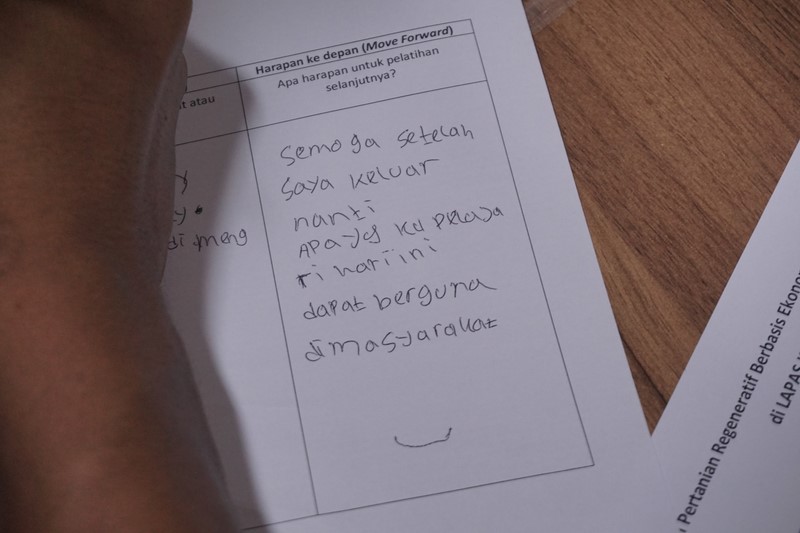 Harapan ke depan (Move Forward)
Apa harapan untuk pelatihan
selanjutnya?
atau
semoga setelah
saya keluar
nanti
APA yg ku pelaja
ri hari ini
dapat berguna
dimasyarakat
y
y.
di meng
Pertanian Regeneratif Berbasis Ekono
di LAPAS